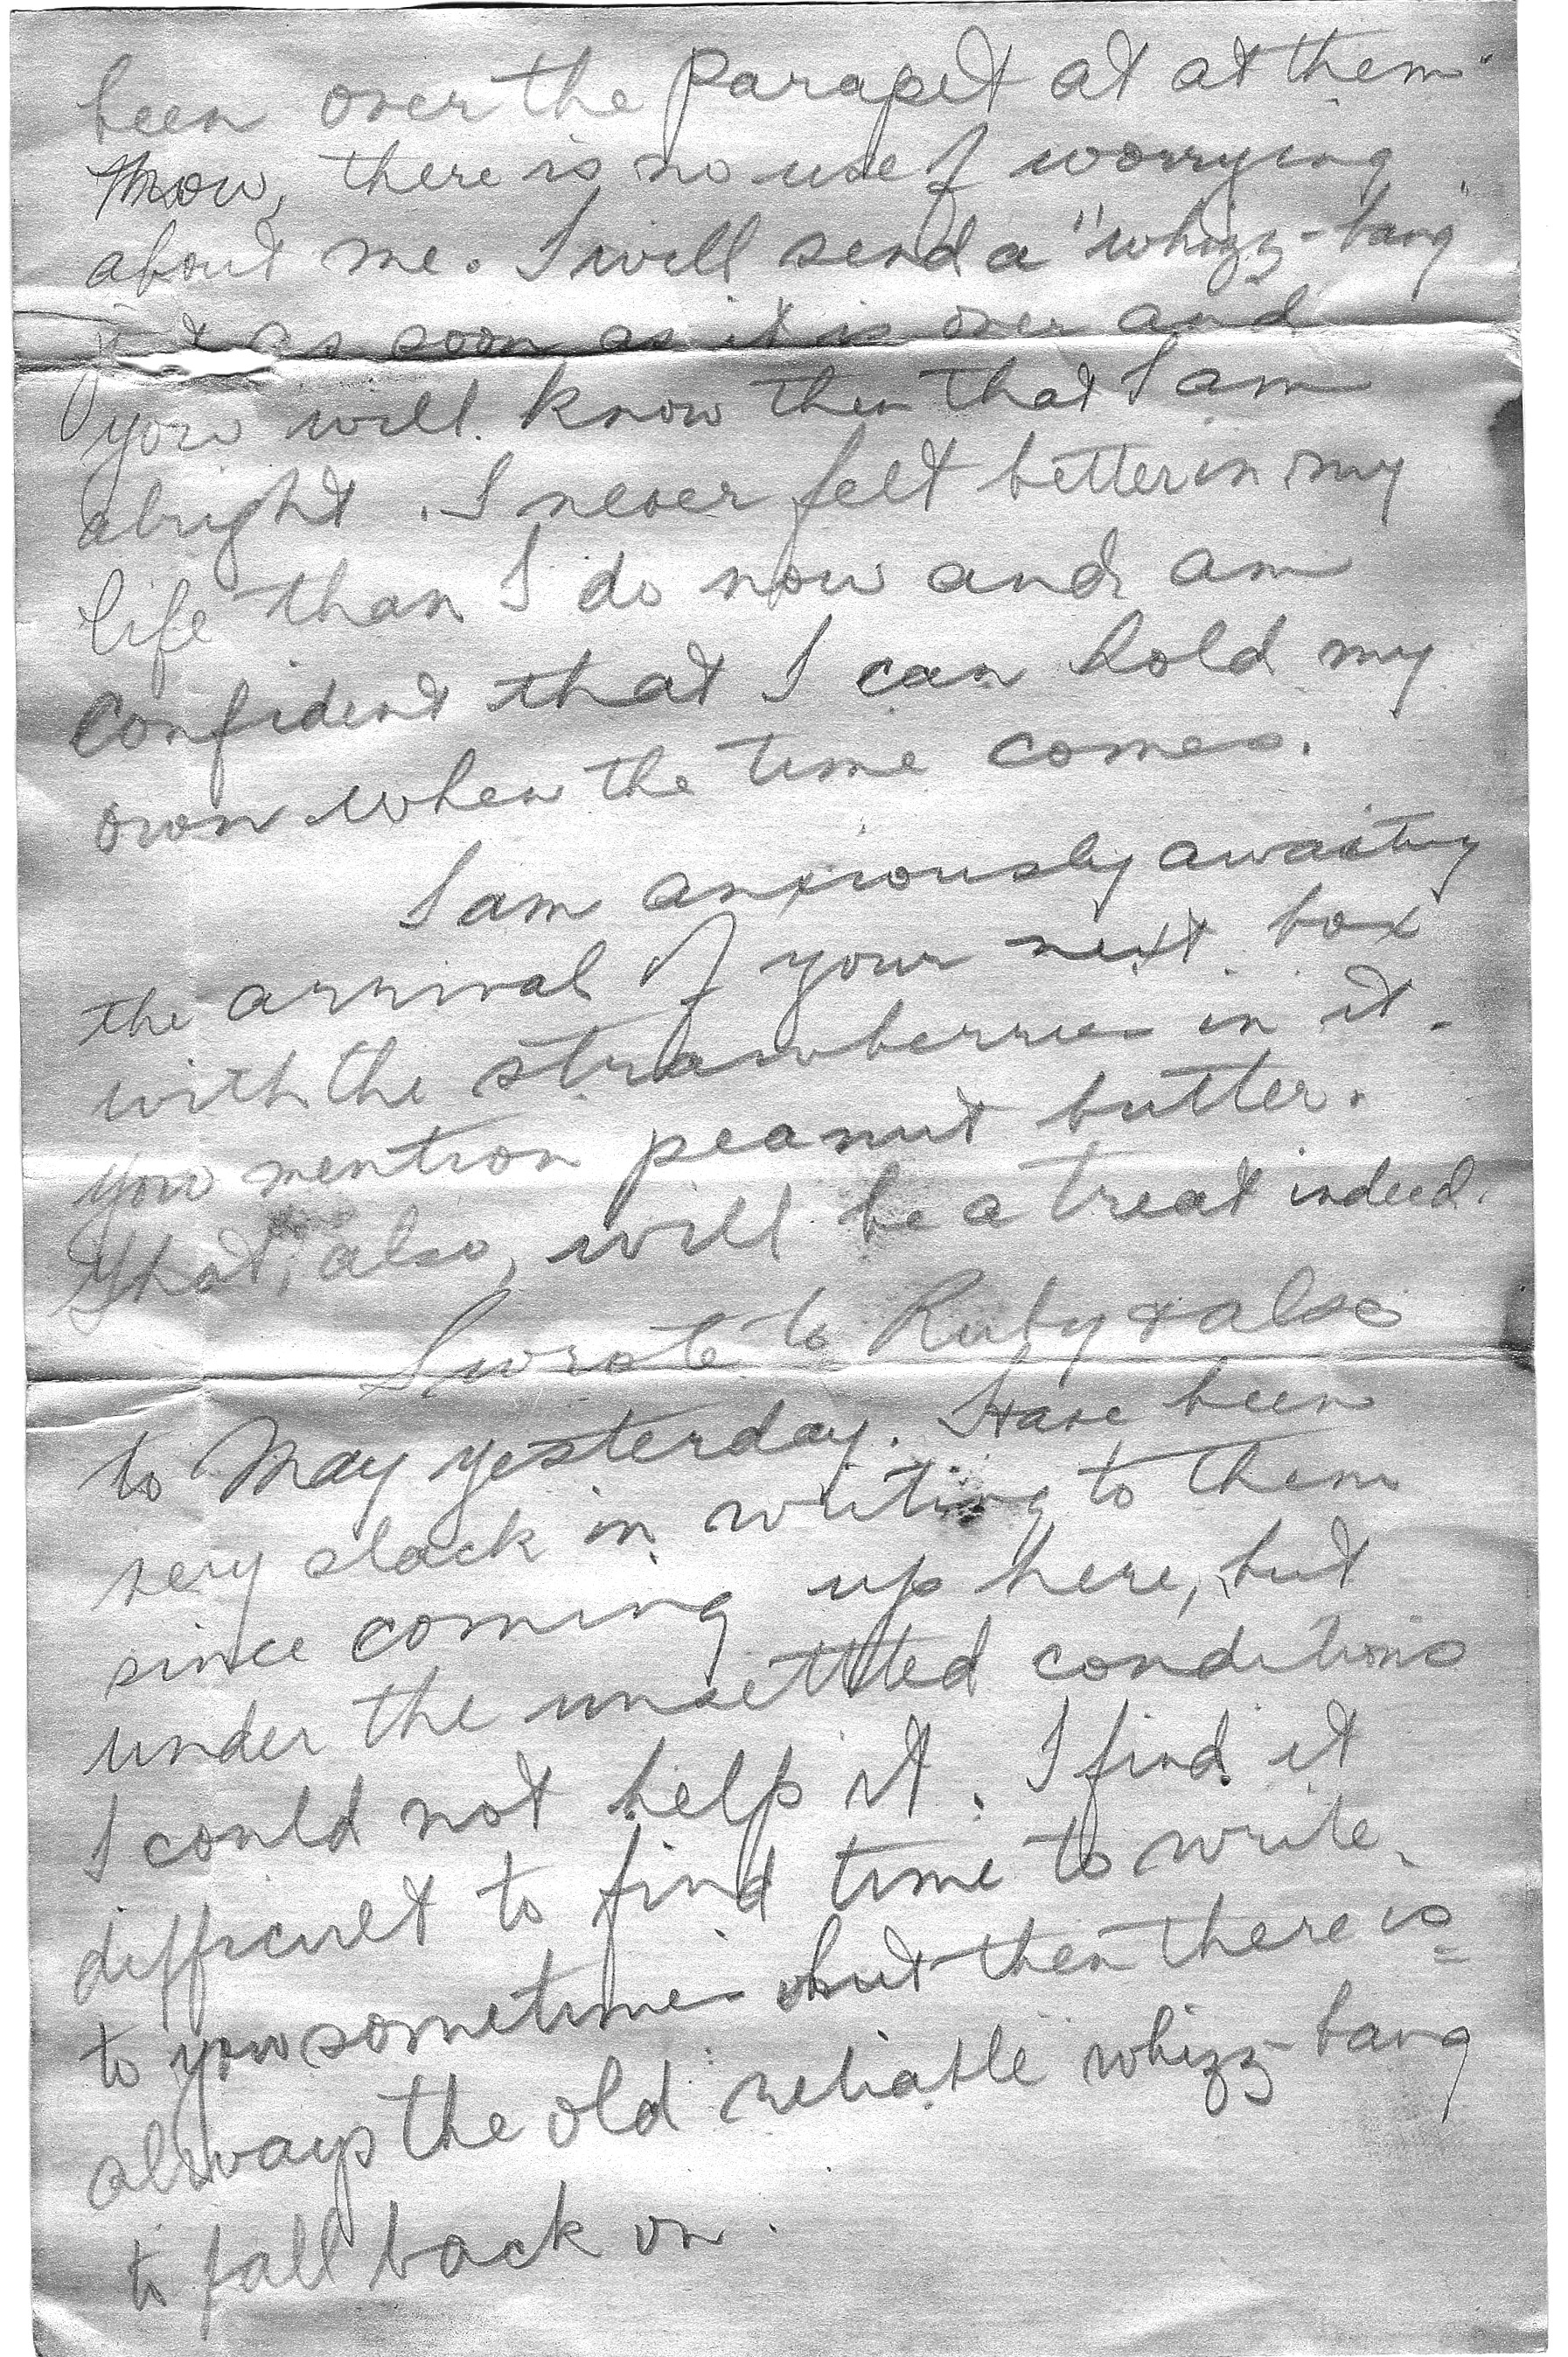 been over the parapet at at them."
Now, there is no use of worrying
about me. I will send a "whizz-bang"
as soon as it is over and
you will know then that I am
alright. I never felt better in my
life than I do now and am
confident that I can hold my
own when the time comes.
I am anxiously awaiting
the arrival of your next box
with the strawberries in it.
You mention peanut butter.
That, also, will be a treat indeed.
I wrote to Ruby & also
to May yesterday. Have been
very slack in writing to them
since coming up here, but
under the unsettled conditions
I could not help it. I find it
difficult to find time to write
to you sometimes but then there is
always the old reliable whizz-bang
to fall back on.